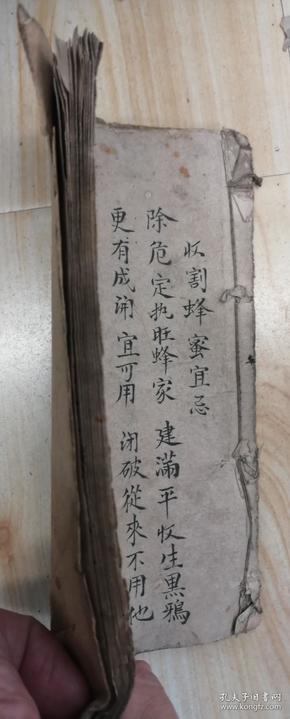 收割蜂蜜宜忌
除危定执旺蜂家 建满平收生黑鴉
更有成開宜可用 闭破從來不用他
孔夫子旧书网
www.kongfz.com